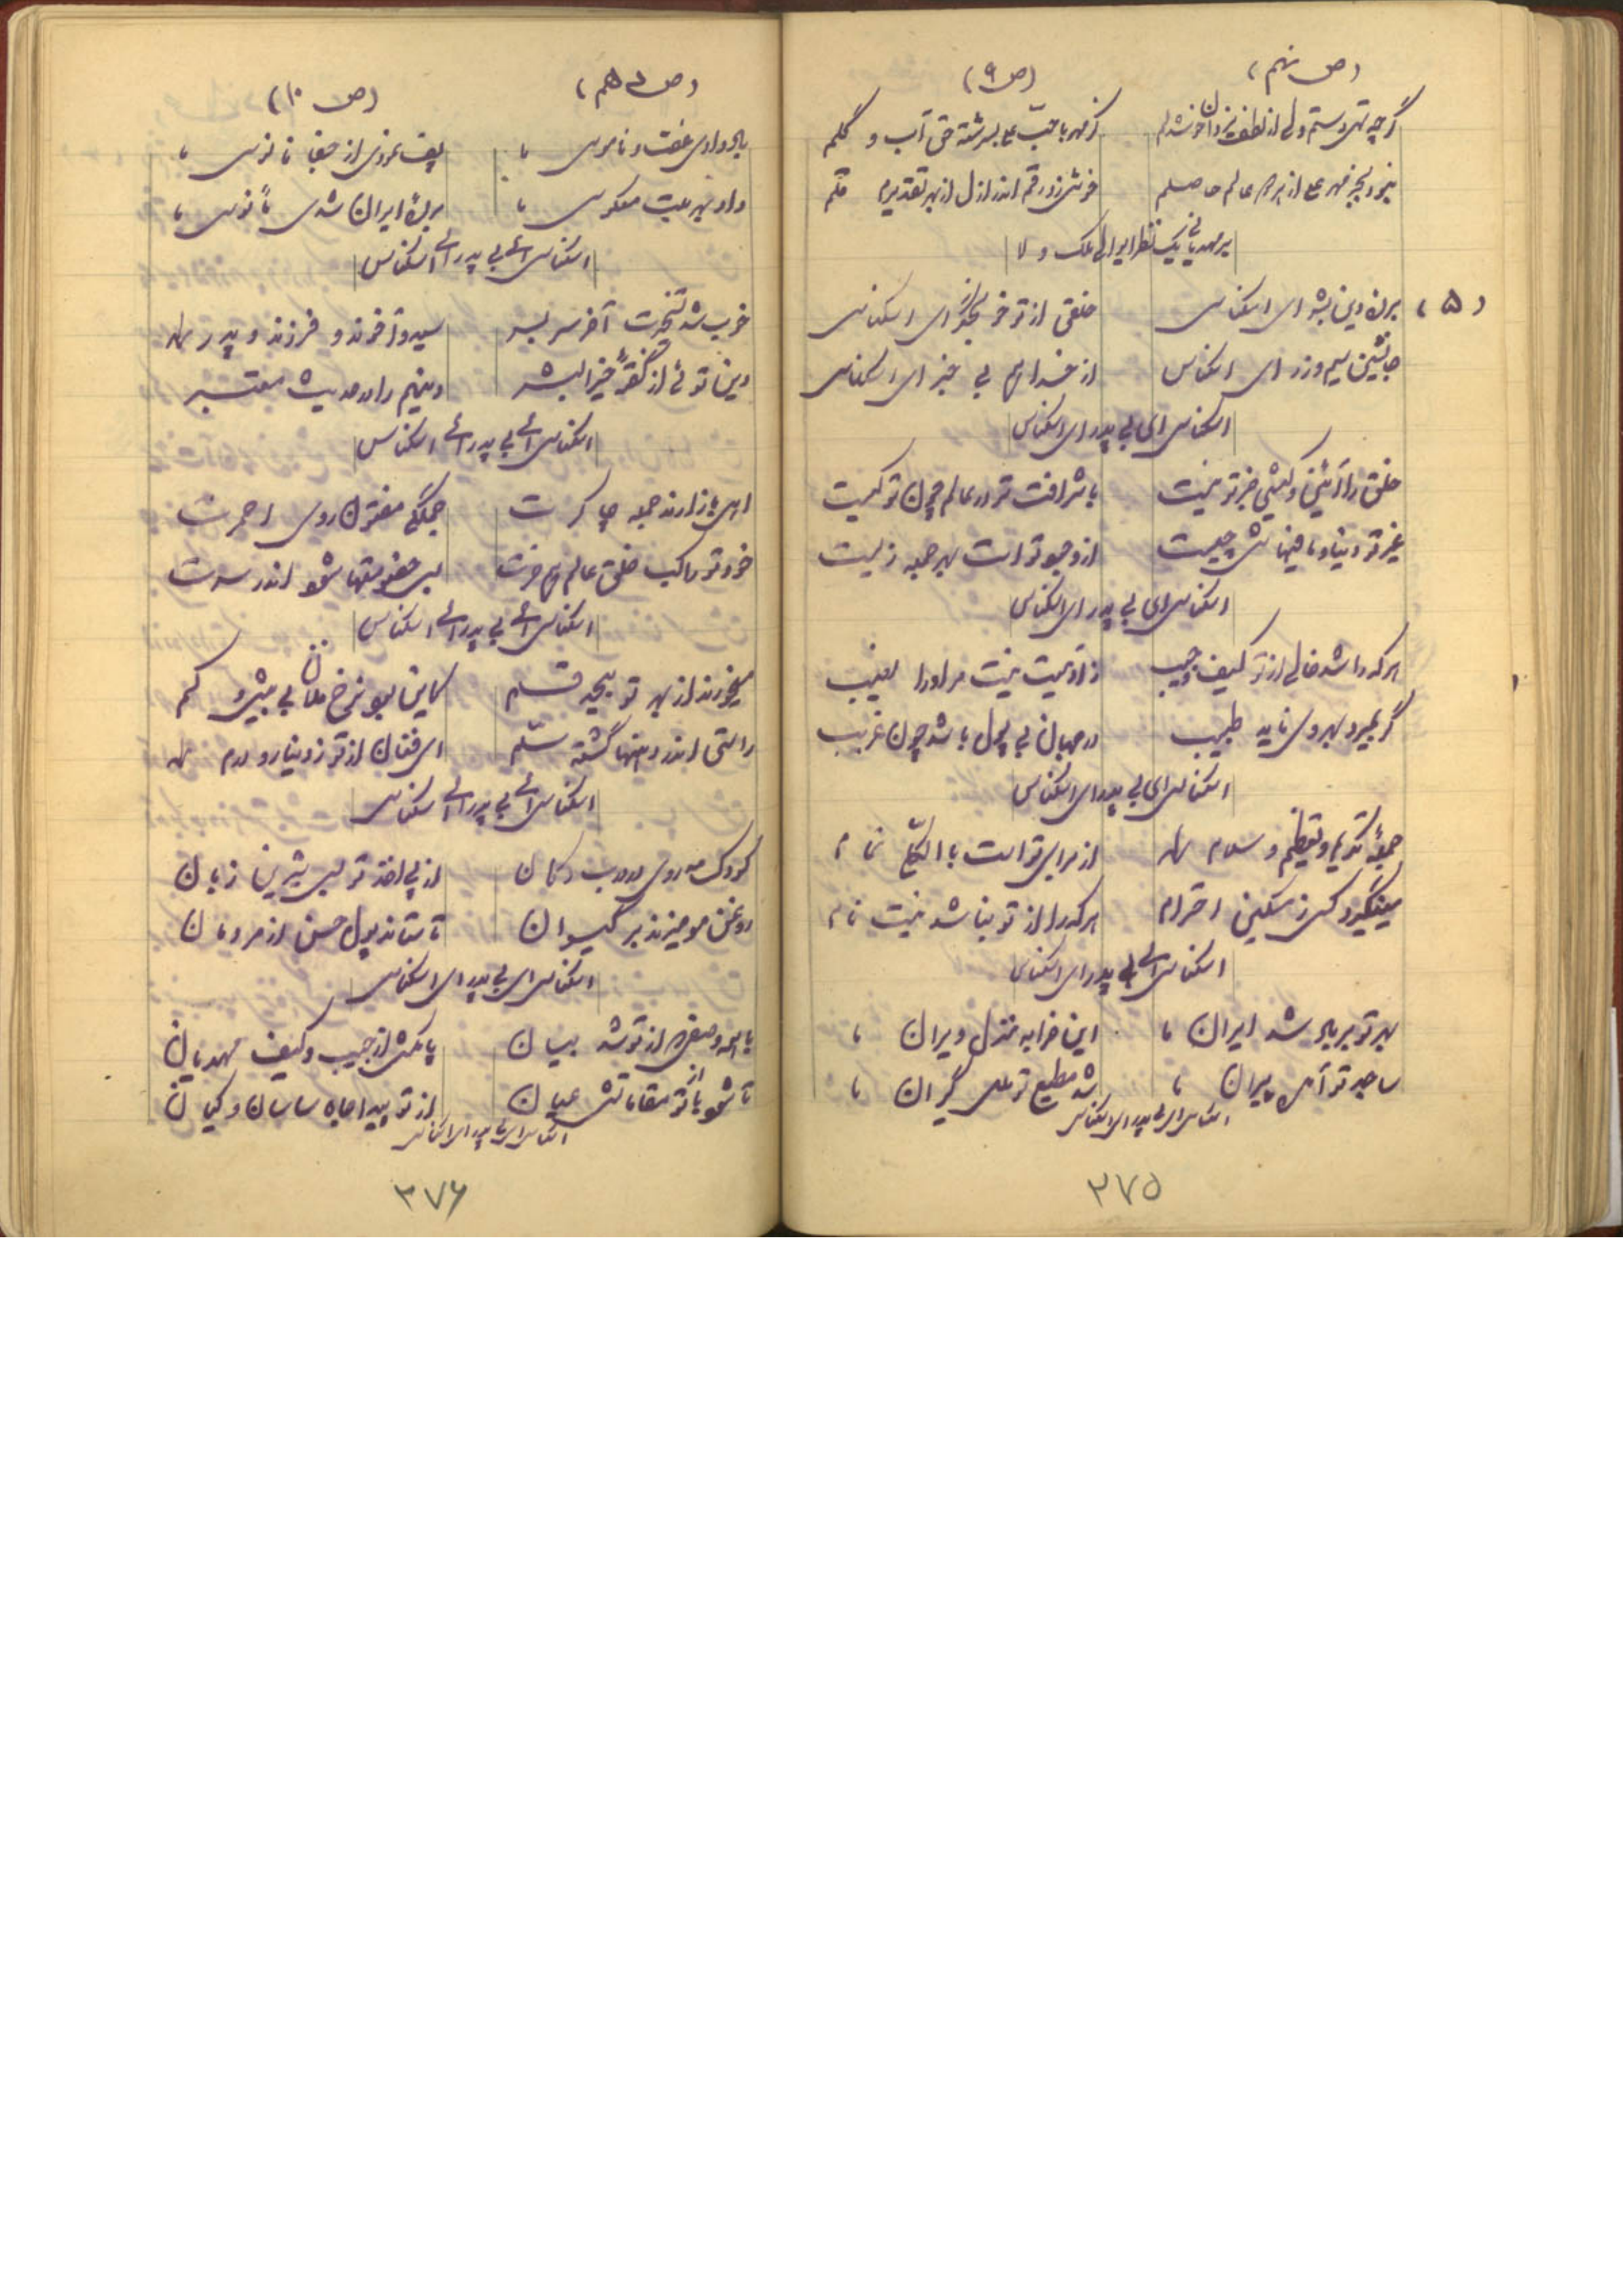 (ص نهم) (ص ۹)
گرچه تهی دستم ولی از لطف یزدان خوشدلم کز مهر با حب علی بسرشته حق آب و گلم
نبود بجز مهر علی از بهر عالم حاصلم خوش زد رقم اندر ازل از بهر تقدیرم قلم
بر مهدیانی یک نظر ای والی ملک ولا
(۵) برده دین بشر ای اسکناس خلقی از تو در ای اسکناس
جانشین سیم و زر ای اسکناس از خدا هم بی خبر ای اسکناس
اسکناس ای بی پدر ای اسکناس
خلق را آئین و کیشی جز تو نیست با شرافت تر در عالم چون تو کیست
غیر تو دنیا و مافیهاش چیست از وجود تو است بهر جمله زیست
اسکناس ای بی پدر ای اسکناس
هر که را شد خالی از تو کیف و جیب ز آدمیت نیست مر او را نصیب
گر بمیرد بهر وی ناید طبیب در جهان بی پول باشد چون غریب
اسکناس ای بی پدر ای اسکناس
جمله تکریم و تعظیم و سلام از برای تو است با الکل تمام
مینگیرد کس ز مسکین احترام هر که را از تو نباشد نیست نام
اسکناس ای بی پدر ای اسکناس
بهر تو بر باد شد ایران ما این خرابه منزل ویران ما
ساجد تو آمد پیران ما شد مطیع تو گران ما
اسکناس ای بی پدر ای اسکناس
۳۷۵
(ص دهم) (ص ۱۰)
باد دادی عفت و ناموس ما پف نمودی از جفا فانوس ما
داد بهرت معکوس ما برده ایران شدی مأنوس ما
اسکناس ای بی پدر ای اسکناس
خوب شد آخر سر بسر سید و آخوند و فرزند و پدر
دین توئی از گفته خیر البشر دینهم را در حدیث معتبر
اسکناس ای بی پدر ای اسکناس
اهل زارند جمله چاکرت جملگی مفتون روی احمرت
خود تو راکب خلق عالم هم خرت بس خصومتها شود اندر سرت
اسکناس ای بی پدر ای اسکناس
میخورند از بهر تو بیحد قسم کاین بود نرخ فلان بی بیش و کم
راستی اندر دهنها گشته سم ای فغان از تو ز دینار و درم
اسکناس ای بی پدر ای اسکناس
کودک مه روی در درب دکان از پی اخذ تو بس شیرین زبان
روغن مو میزند بر گیسوان تا ستاند پول حسن از مردمان
اسکناس ای بی پدر ای اسکناس
با همه وصفی که از تو شد بیان پا مکش از جیب و کیف مهدیان
تا شود از تو مقاماتش عیان از تو پیدا جاه ساسان و کیان
اسکناس ای بی پدر ای اسکناس
۳۷۶